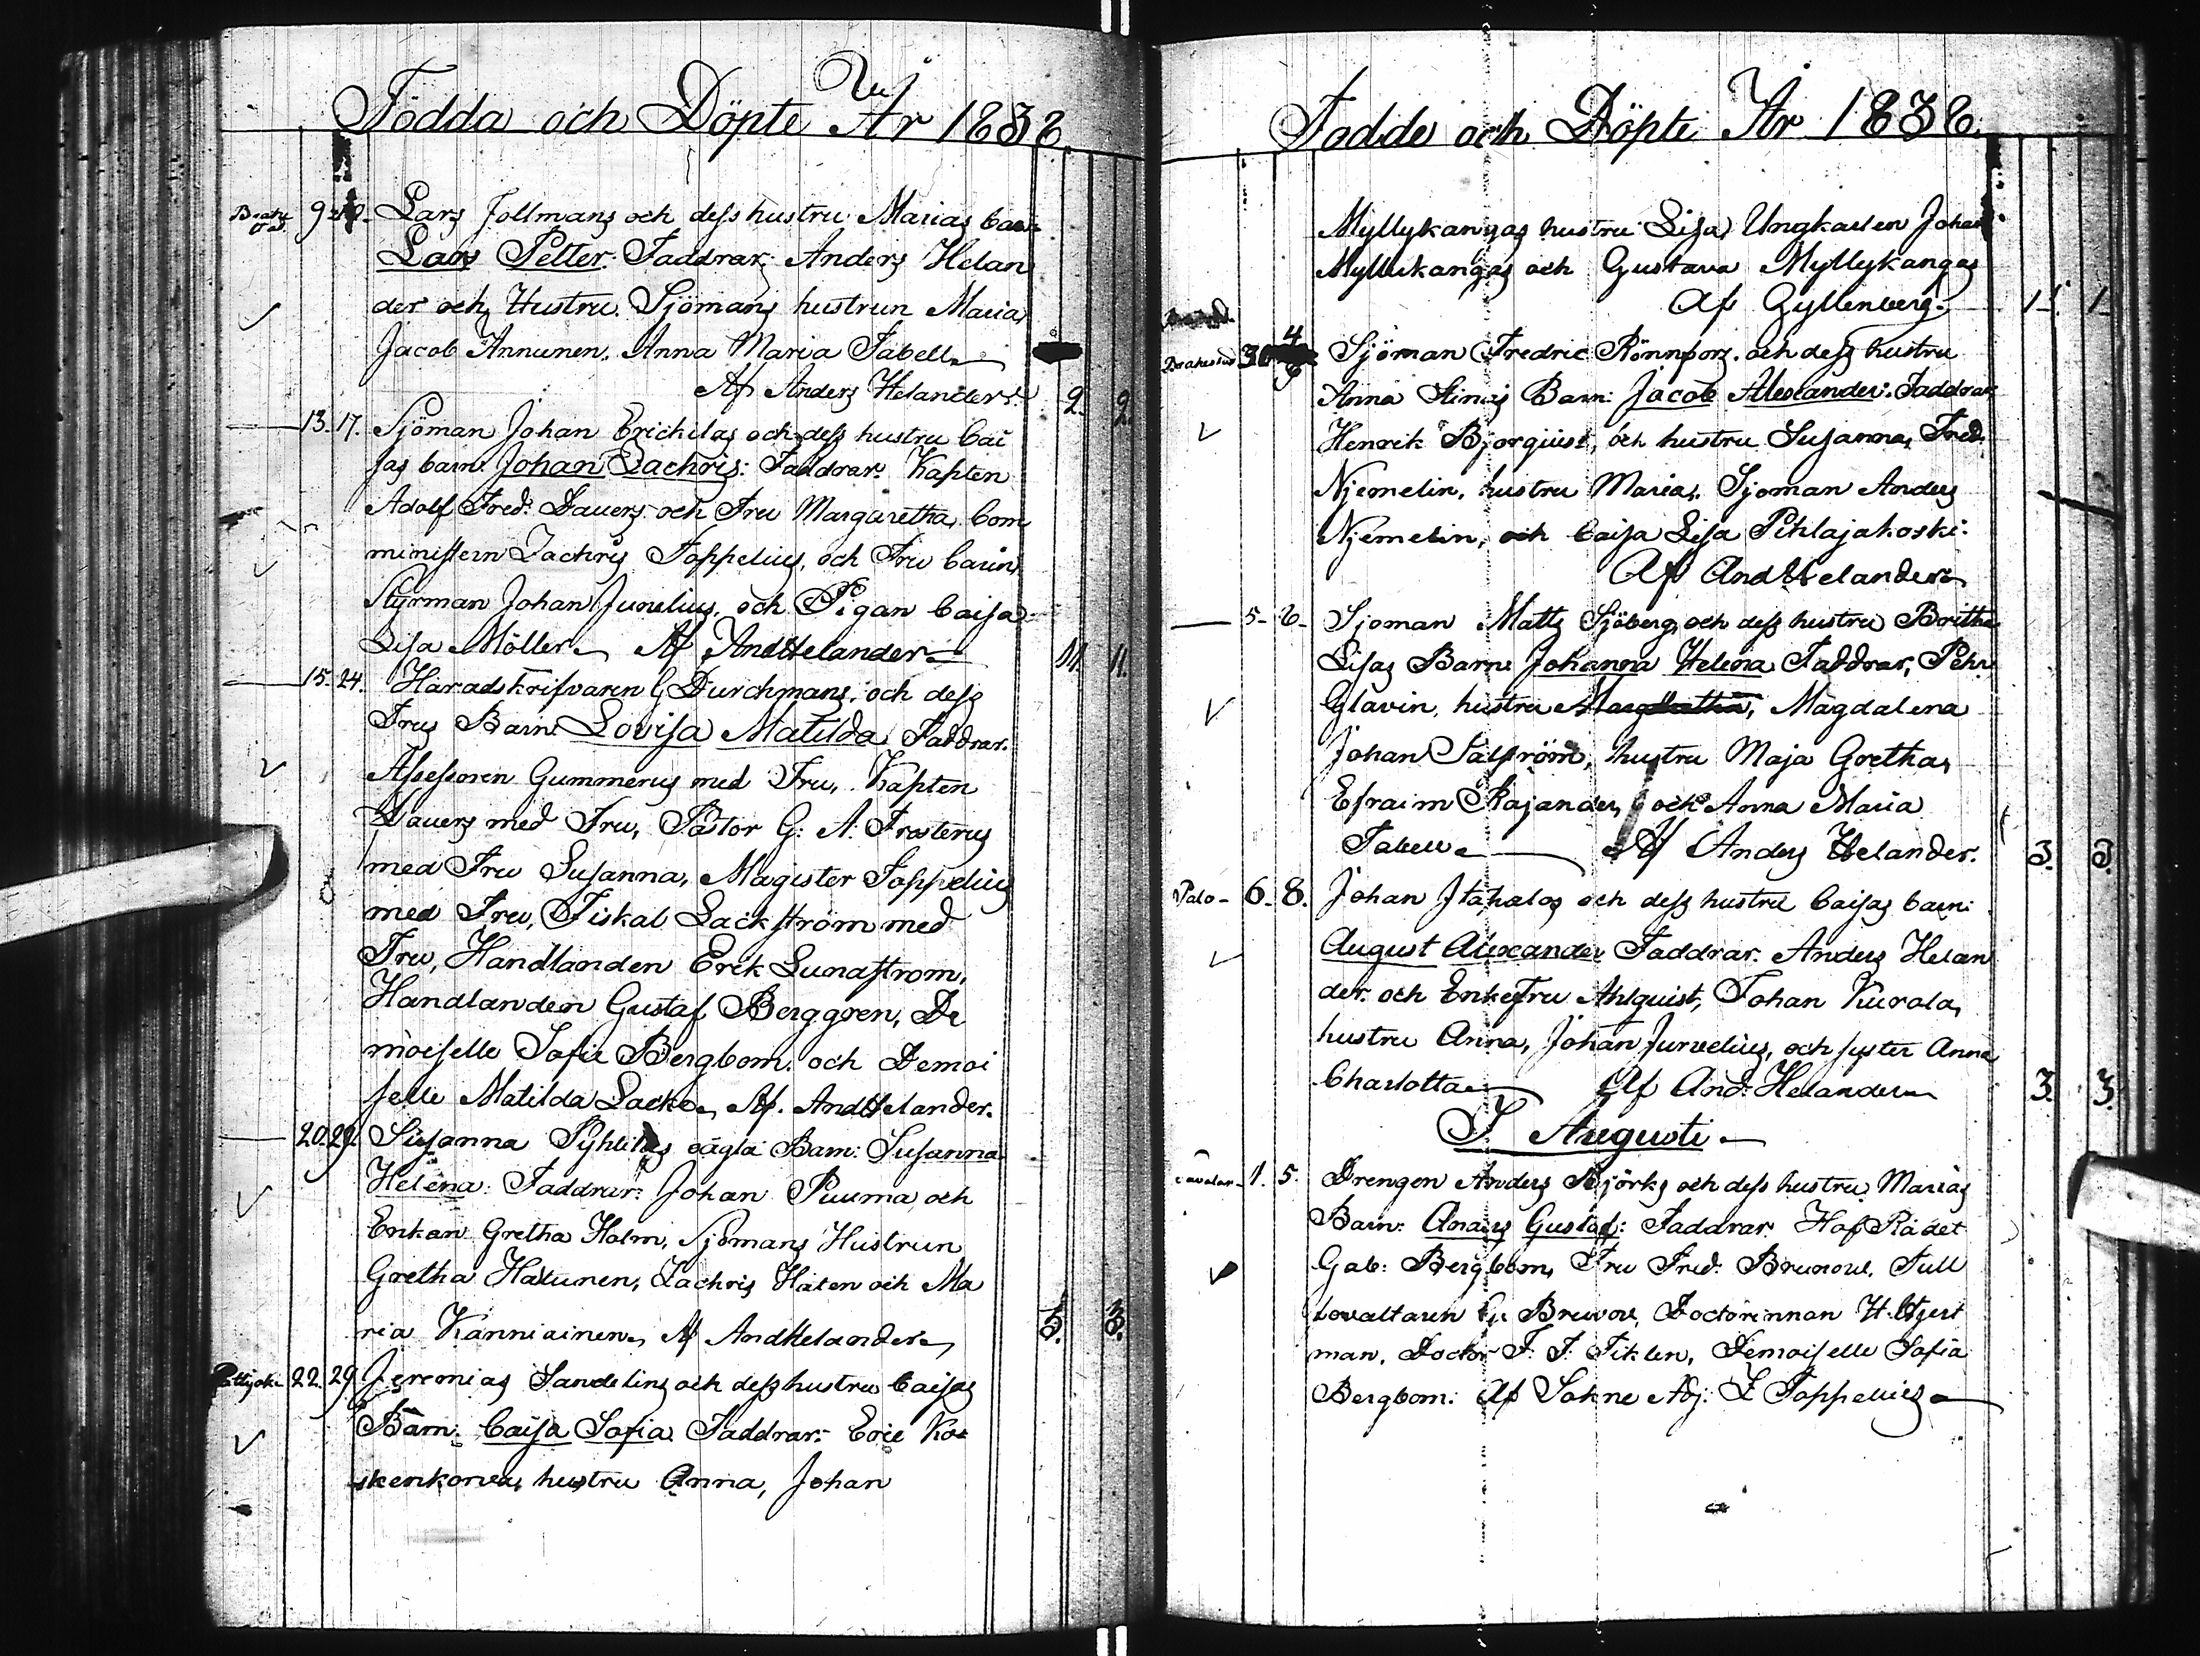 Födda och Döpte År 1838.
9. Lars Jollmans och dess hustru Marias barn
Lars Petter. Faddrar: Anders Helan
der och Hustru. Sjömans hustrun Maria
Jacob Annunen. Anna Maria Tabell
Af Anders Helander. 2. 2
13. 17. Sjöman Johan Erichilas och dess hustru Cai
sas barn. Johan Zachris: Faddrar. Kapten
Adolf Fred. Lauers och Fru Margaretha. Com
ministern Zachris Toppelius, och Fru Carin,
Styrman Johan Jurvelius, och Pigan Caisa
Lisa Möller. Af AndHelander 11. 11.
15. 24. Häradskrifvaren G Durchmans, och dess
Frus Barn. Lovisa Matilda Faddrar.
Assessoren Gummerus med Fru, Kapten
Lauers med Fru, Pastor G: A: Frosterus
med Fru Susanna, Magister Toppelius
med Fru, Fiskal Lackström med
Fru, Handlanden Erik Lundstrom,
Handlanden Gustaf Berggren, De
moiselle Sofie Bergbom, och Demoi
selle Matilda Lacke. Af. AndHelander.
20. 29. Susanna oägta Barn: Susanna
Helena: Faddrar: Johan Puuma och
Enkan Gretha Holm, Sjömans Hustrun
Gretha Halunen, Zachris Haten och Ma
ria Kanniainen, Af AndHelander 3. 3.
Pattijoki 22. 29. Jeremias Sandelins och dess hustru Caisas
Barn: Caisa Sofia. Faddrar: Eric Ko
skenkorva, hustru Anna, Johan
Födde och Döpte År 1838.
Myllykangas hustru Lisa, Ungkarlen Johan
Myllukangas och Gustava Myllykangas
Af Gyllenberg. 1. 1
Brahestad 3 4 Sjöman Fredric Rönnfors. och dess hustru
Anna Stinas Barn: Jacob Alexander. Faddrar
Henrik Bjorquist, och hustru Susanna, Fred.
Njemelin, hustru Maria, Sjoman Anders
Njemelin, och Caisa Lisa Pihlajakoski.
Af AndHelander
5. 6. Sjoman Matts Sjöberg, och dess hustru Britha
Lisas Barn Johanna Helena Faddrar, Pehr
Glavin, hustru Magdalena
Johan Salström, hustru Maja Gretha,
Efraim Kajander, och Anna Maria
Tabell Af Anders Helander. 3. 3
Palo 6. 8. Johan Itähalas och dess hustru Caisas barn:
August Alexander Faddrar. Anders Helan
der. och EnkeFru Ahlquist, Johan Kurala,
hustru Anna, Johan Jurvelius, och syster Anna
Charlotta Af And: Helander 3. 3.
I Augusti
1. 5. Drengen Anders Björks och dess hustru Marias
Barn: Anders Gustaf: Faddrar. Hof Rådet
Gab: Bergbom, Fru Fred: Brunow. Tull
Brunow, Doctorinnan H. Hjert
man, Doctor F. J. Tiklen, Demoiselle Sofia
Bergbom: Af Sokne Adj: Z Toppelius